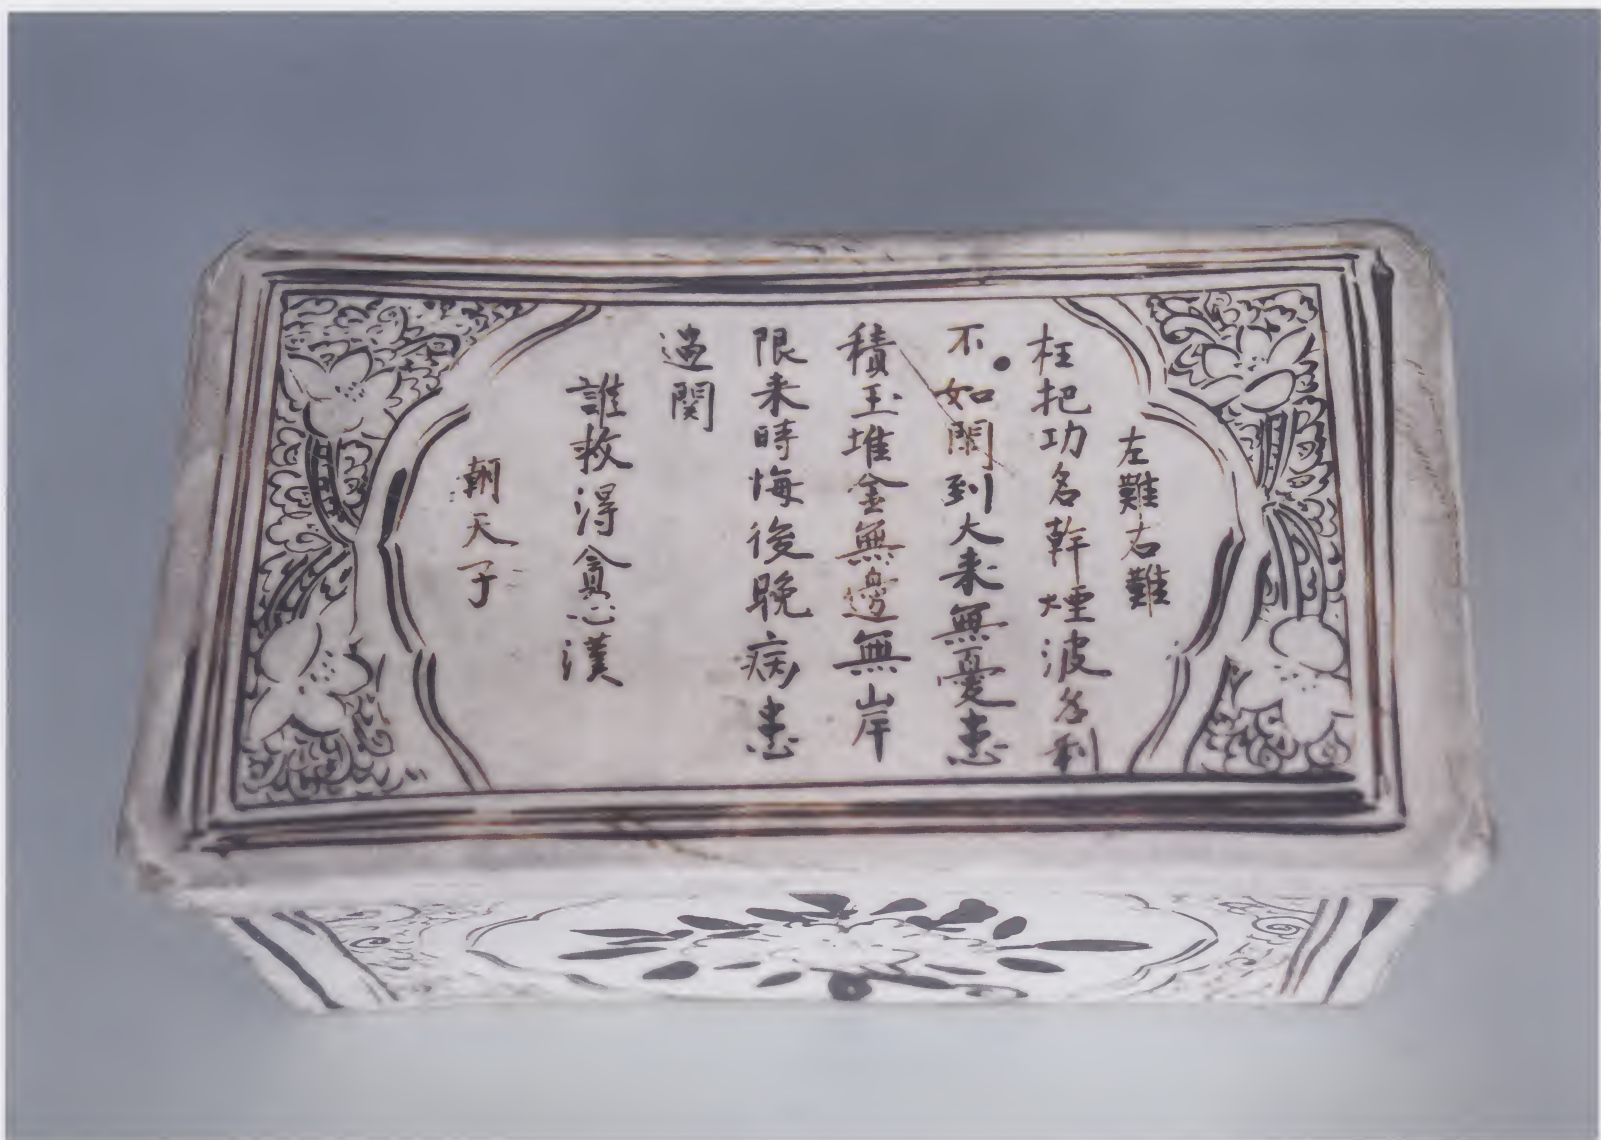 左難右難
枉把功名幹煙波名利
不如閑到大来無憂患
積玉堆金無邊無岸
限来時悔後晚病患
過関
誰救得貪心漢
朝天子